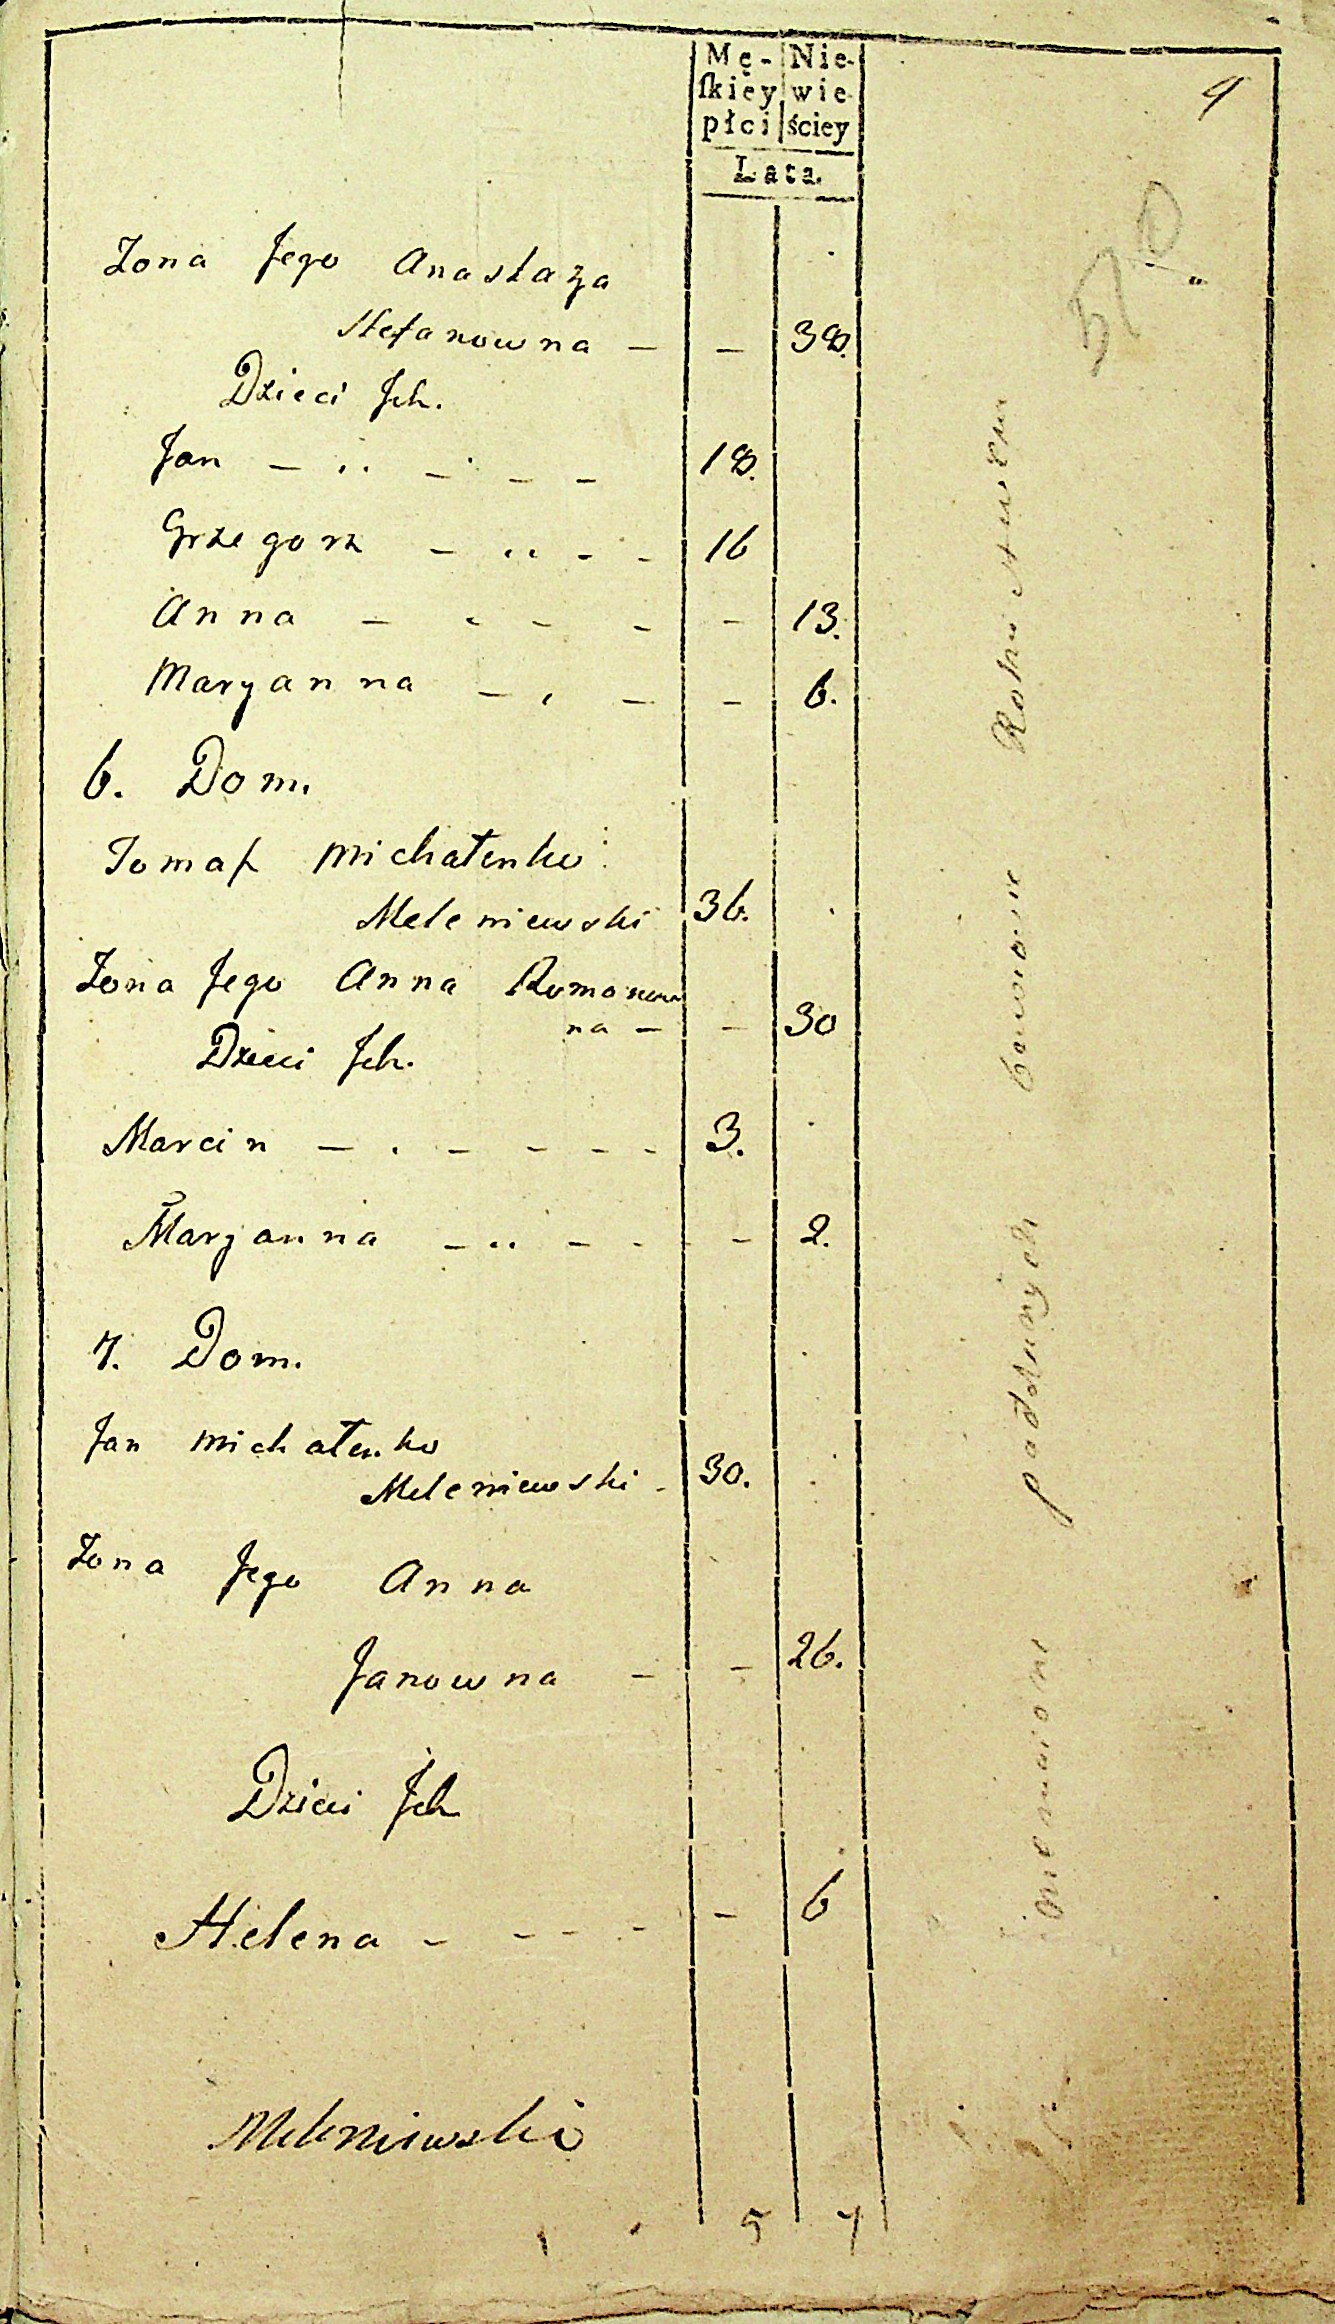 Mę- Nie-
ſkiey wie-
płci ściey
Lata.
9
Żona Jego Anastazya
Stefanowna — — 38.
Dzieci Jch.
Jan — .. — - — — 18.
Grzegorz — .. - - 16
Anna — - - - - 13.
Maryanna — , — - 6.
6. Dom.
Tomaſz Michałenko
Meleniewski 36.
Żona Jego Anna Romanow
na — — 30
Dzieci Jch.
Marcin — . — - - - 3.
Maryanna — .. - - - 2.
7. Dom.
Jan Michałenko
Meleniewski - 30.
Żona Jego Anna
Janowna — — 26.
Dzieci Jch
Helena - - - - - 6
Meleniewski
5 7